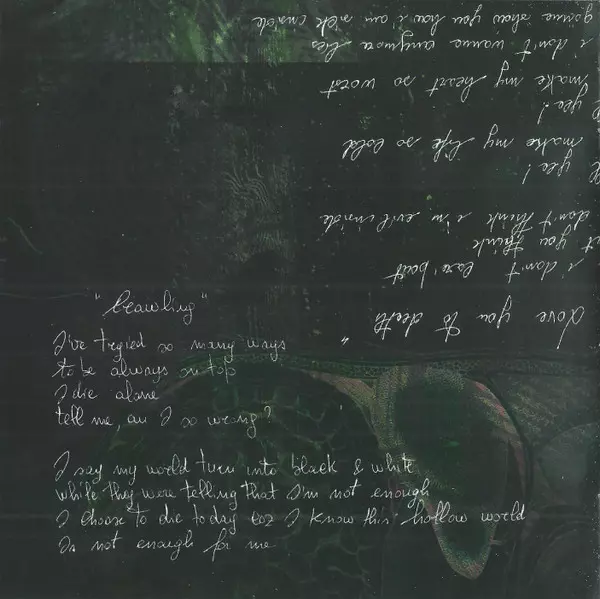 "Crawling"
I've tryied so many ways
to be always on top
I die alone
tell me, am I so wrong?
I say my world turn into black & white
while they were telling that I'm not enough
I choose to die today coz I know this hollow world
Is not enough for me
Love you to death"
i don't care 'bout
you think
don't think i'm evil inside
yea!
make my life so cold
yea!
make my heart so worst
i don't wanna anymore lies
gonna show you how i am sick inside